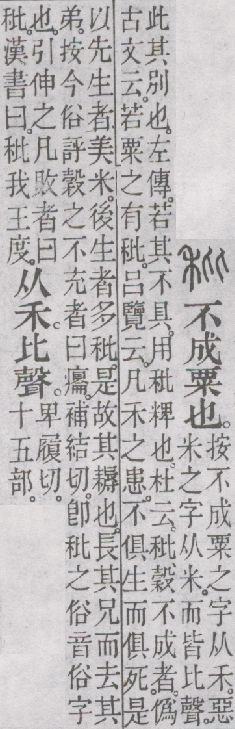 不成粟也。
按不成粟之字从禾。惡
米之字从米。而皆比聲。
此其別也。左傳。若其不具。用秕粺也。杜云。秕穀不成者。僞
古文云。若粟之有秕。呂覽云。凡禾之患。不俱生而俱死。是
以先生者美米。後生者多秕。是故其耨也。長其兄而去其
弟。按今俗𧦝穀之不充者曰癟。補結切。卽秕之俗音俗字
也。引伸之凡敗者曰
秕。漢書曰。秕我王度。
从禾比聲。
卑履切。
十五部。